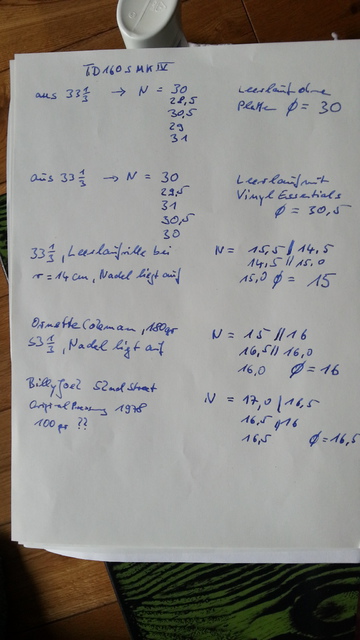 TD160S MK IV
aus 33 1/3 → N = 30 Leerlauf ohne
28,5 Platten Ø = 30
30,5
29
31
aus 33 1/3 → N = 30 Leerlauf mit
29,5 Vinyl Essentials
31 Ø = 30,5
30,5
30
33 1/3, Leerlaufrille bei N = 15,5 // 14,5
r = 14 cm, Nadel liegt auf 14,5 // 15,0
15,0 Ø = 15
Ornette Coleman, 180gr N = 15 // 16
33 1/3, Nadel liegt auf 16,5 // 16,0
16,0 Ø = 16
Billy Joel 52nd Street N = 17,0 / 16,5
Original Pressung 1978 16,5 // 16
100gr ?? 16,5 Ø = 16,5